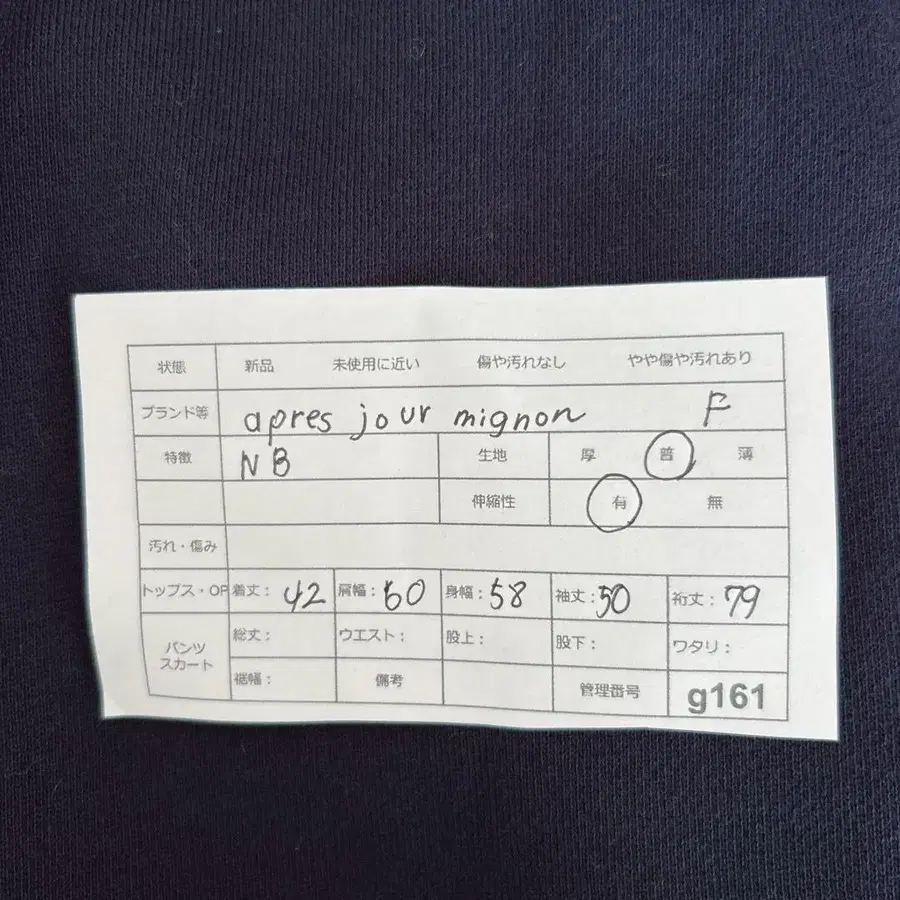 状態 新品 未使用に近い 傷や汚れなし やや傷や汚れあり
ブランド等 apres jour mignon F
特徴 NB 生地 厚 普 薄
伸縮性 有 無
汚れ・傷み
トップス・OP 着丈: 42 肩幅: 60 身幅: 58 袖丈: 50 裄丈: 79
パンツ スカート 総丈: ウエスト: 股上: 股下: ワタリ:
裾幅: 備考 管理番号 g161